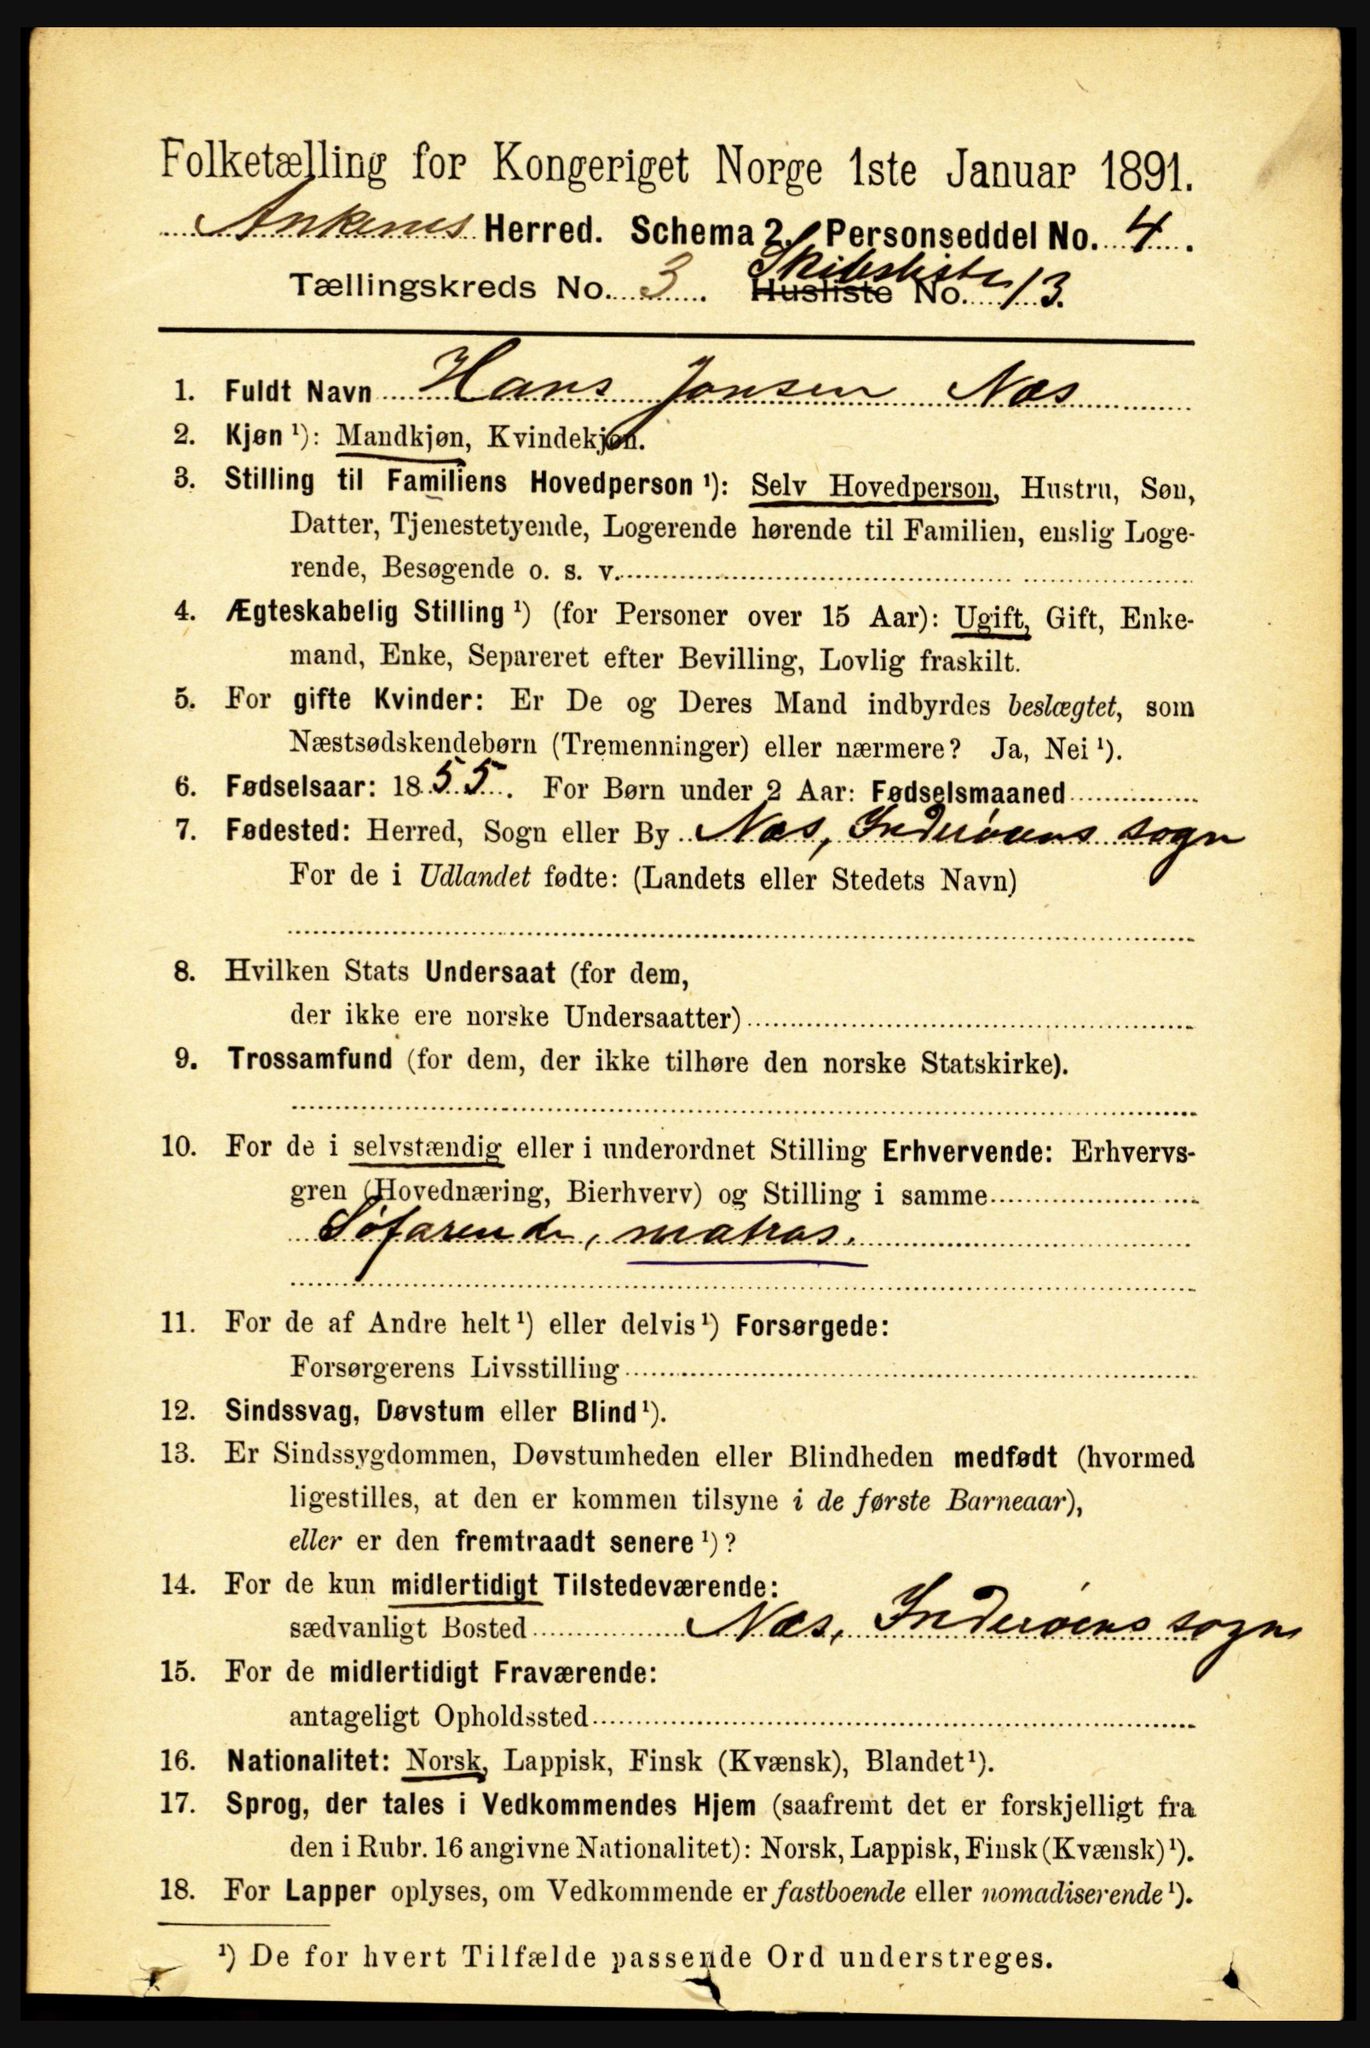 Folketælling for Kongeriget Norge 1ste Januar 1891.
Ankenes Herred. Schema 2. Personseddel No. 4.
Skibsliste
Tællingskreds No. 3. Husliste No. 13.
1. Fuldt Navn Hans Jonsen Næs
2. Kjøn ¹): Mandkjøn, Kvindekjøn.
3. Stilling til Familiens Hovedperson ¹): Selv Hovedperson, Hustru, Søn,
Datter, Tjenestetyende, Logerende hørende til Familien, enslig Loge-
rende, Besøgende o. s. v.
4. Ægteskabelig Stilling ¹) (for Personer over 15 Aar): Ugift, Gift, Enke-
mand, Enke, Separeret efter Bevilling, Lovlig fraskilt.
5. For gifte Kvinder: Er De og Deres Mand indbyrdes beslægtet, som
Næstsødskendebørn (Tremenninger) eller nærmere? Ja, Nei ¹).
6. Fødselsaar: 1855. For Børn under 2 Aar: Fødselsmaaned
7. Fødested: Herred, Sogn eller By Næs, Inderøens sogn
For de i Udlandet fødte: (Landets eller Stedets Navn)
8. Hvilken Stats Undersaat (for dem,
der ikke ere norske Undersaatter)
9. Trossamfund (for dem, der ikke tilhøre den norske Statskirke).
10. For de i selvstændig eller i underordnet Stilling Erhvervende: Erhvervs-
gren (Hovednæring, Bierhverv) og Stilling i samme
Søfarende, matros.
11. For de af Andre helt ¹) eller delvis ¹) Forsørgede:
Forsørgerens Livsstilling
12. Sindssvag, Døvstum eller Blind ¹).
13. Er Sindssygdommen, Døvstumheden eller Blindheden medfødt (hvormed
ligestilles, at den er kommen tilsyne i de første Barneaar),
eller er den fremtraadt senere ¹)?
14. For de kun midlertidigt Tilstedeværende:
sædvanligt Bosted Næs, Inderøens sogn
15. For de midlertidigt Fraværende:
antageligt Opholdssted
16. Nationalitet: Norsk, Lappisk, Finsk (Kvænsk), Blandet ¹).
17. Sprog, der tales i Vedkommendes Hjem (saafremt det er forskjelligt fra
den i Rubr. 16 angivne Nationalitet): Norsk, Lappisk, Finsk (Kvænsk) ¹).
18. For Lapper oplyses, om Vedkommende er fastboende eller nomadiserende ¹).
¹) De for hvert Tilfælde passende Ord understreges.